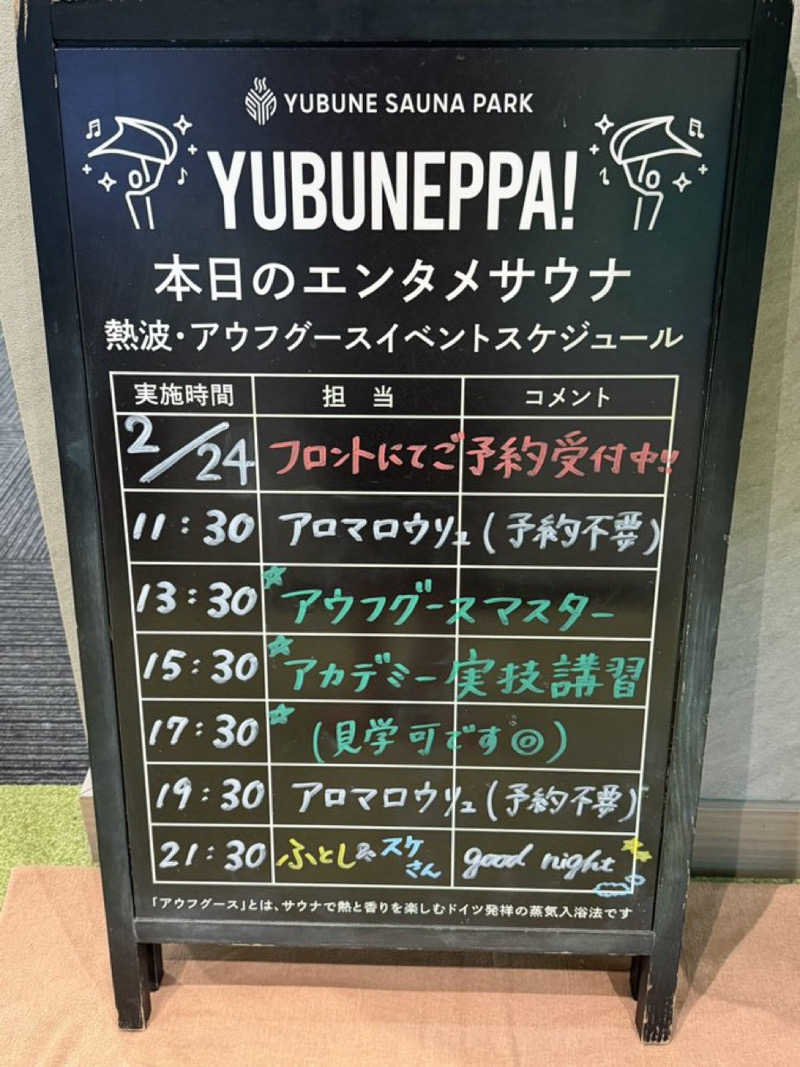 YUBUNE SAUNA PARK
YUBUNEPPA!
本日のエンタメサウナ
熱波・アウフグースイベントスケジュール
実施時間 担当 コメント
2/24 フロントにてご予約受付中!!
11:30 アロマロウリュ(予約不要)
13:30 アウフグースマスター
15:30 アカデミー実技講習
17:30 (見学可です◎)
19:30 アロマロウリュ(予約不要)
21:30 ふとし&スケさん good night
「アウフグース」とは、サウナで熱と香りを楽しむドイツ発祥の蒸気入浴法です